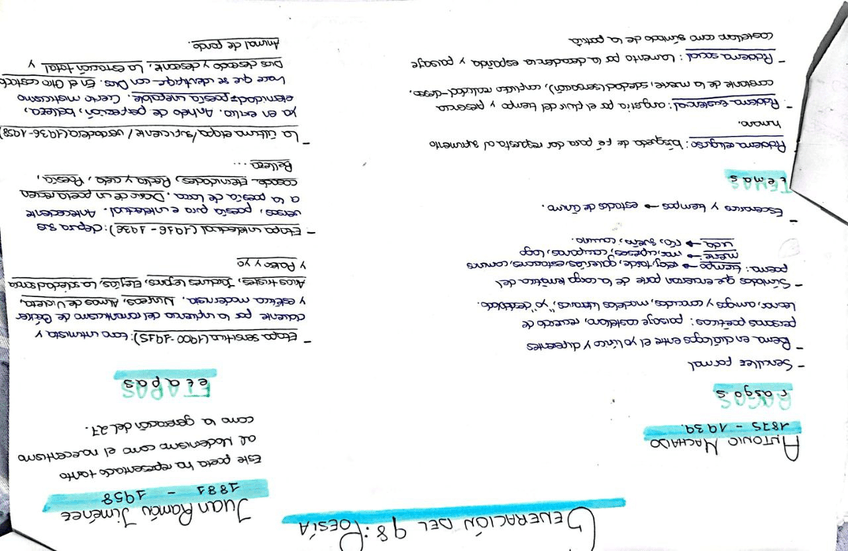 GENERACIÓN DEL 98: POESÍA
ANTONIO MACHADO
1875 - 1939
RASGOS
rasgos
- Sencillez formal
- Poema en diálogos entre el yo lírico y diferentes
personas poéticas: paisaje castellano, recuerdo de
Leonor, amigos y conocidos, modelos literarios, "yo" desdoblado.
- Símbolos que encierran parte de la temática del
poema: tiempo → reloj, tarde, galerías, estaciones, caminos
muerte → mar, cipreses, campanas, lago
vida → río, sueño, camino.
- Escenarios y tiempos → estados de ánimo.
TEMAS
temas
Problema religioso: búsqueda de fé para dar respuesta al sufrimiento
humano.
- Problema existencial: angustia por el fluir del tiempo y presencia
constante de la muerte, soledad (sensación), conflicto realidad-deseo.
- Problema social: Lamento por la decadencia española y paisaje
castellano como símbolo de la patria
Juan Ramón Jiménez
1881 - 1958
Este poeta ha representado tanto
al Modernismo como el novecentismo
como la generación del 27.
ETAPAS
etapas
- Etapa sensitiva (1900-1915): tono intimista y
doliente por la influencia del romanticismo de Bécquer
y estética modernista. Ninfeas, Almas de Violeta,
Arias tristes, Jardines lejanos, Elegías, La soledad sonora
y Platero y yo
- Etapa intelectual (1916-1936): depura sus
versos, poesía pura e intelectual. Antecedente
a la poesía de Lorca. Diario de un poeta recién
casado, Eternidades, Piedra y cielo, Poesía,
Belleza ...
- La última etapa/suficiente/verdadera (1936-1958)
ya en exilio. Anhelo de perfección, belleza,
eternidad → poesía inefable. Cierto misticismo
hace que se identifique con Dios. En el Otro costado
Dios deseado y deseante, La estación total y
Animal de fondo.